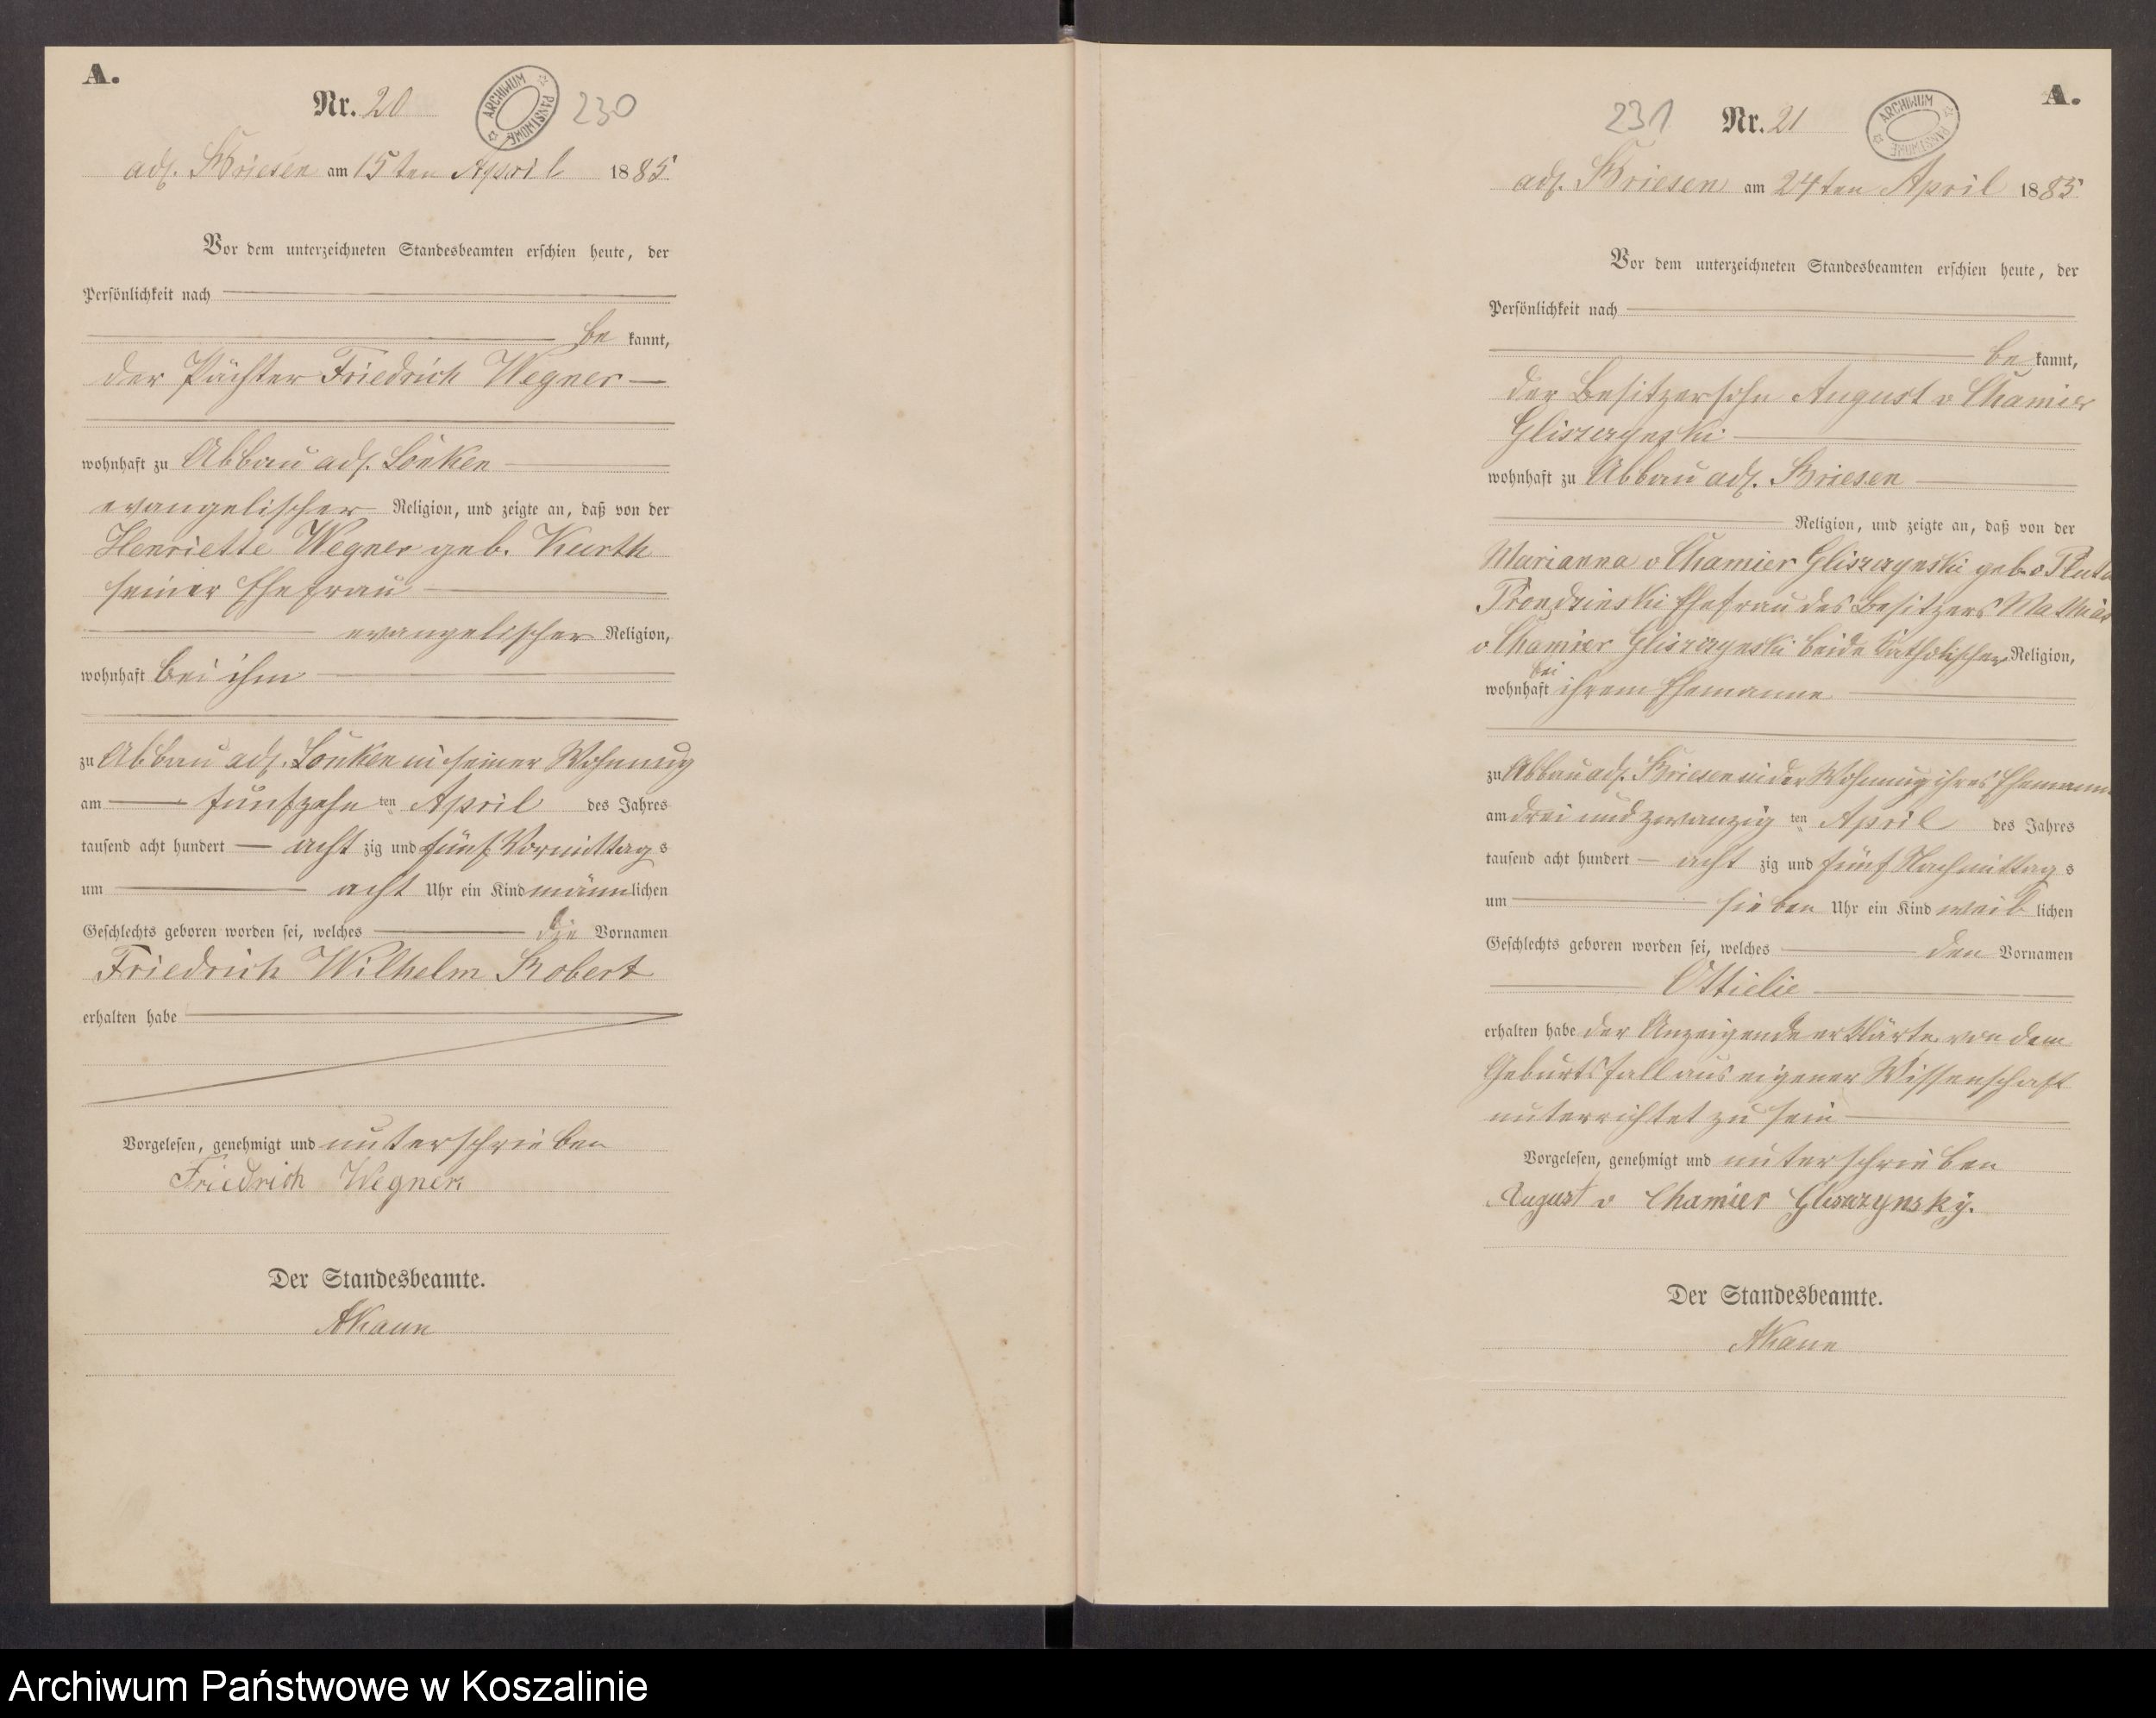 A.
Nr. 20
ARCHIWUM PAŃSTWOWE
230
adl. Briesen am 15ten April 1885
Vor dem unterzeichneten Standesbeamten erschien heute, der
Persönlichkeit nach
be kannt,
der Pächter Friedrich Wegner
wohnhaft zu Abbau adl. Lonken
evangelischer Religion, und zeigte an, daß von der
Henriette Wegner geb. Kurth
seiner Ehefrau
evangelischer Religion,
wohnhaft bei ihm
zu Abbau adl. Lonken in seiner Wohnung
am fünfzehn ten April des Jahres
tausend acht hundert acht zig und fünf Vormittags
um acht Uhr ein Kind männlichen
Geschlechts geboren worden sei, welches die Vornamen
Friedrich Wilhelm Robert
erhalten habe
Vorgelesen, genehmigt und unterschrieben
Friedrich Wegner
Der Standesbeamte.
A.
231
Nr. 21
ARCHIWUM PAŃSTWOWE
adl. Briesen am 24ten April 1885
Vor dem unterzeichneten Standesbeamten erschien heute, der
Persönlichkeit nach
be kannt,
der Besitzersohn August v Chamier
Gliszczynski
wohnhaft zu Abbau adl. Briesen
Religion, und zeigte an, daß von der
Marianna v Chamier Gliszczynski geb. v Pluto
Prondzinski Ehefrau des Besitzers Mathias
v Chamier Gliszczynski beide katholischer Religion,
bei
wohnhaft ihrem Ehemanne
zu Abbau adl. Briesen in der Wohnung ihres Ehemanns
am drei und zwanzig ten April des Jahres
tausend acht hundert acht zig und fünf Nachmittags
um sieben Uhr ein Kind weib lichen
Geschlechts geboren worden sei, welches den Vornamen
Ottielie
erhalten habe der Anzeigende erklärte von dem
Geburtsfall aus eigener Wissenschaft
unterrichtet zu sein
Vorgelesen, genehmigt und unterschrieben
August v Chamier Gliszczynsky.
Der Standesbeamte.
Archiwum Państwowe w Koszalinie